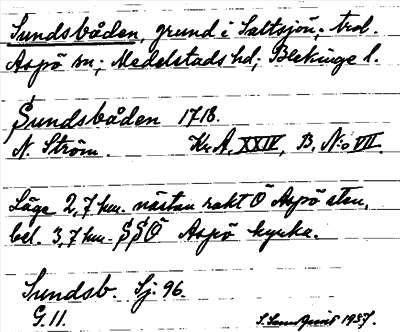 Sundsbåden, grund i Saltsjön; trol.
Aspö sn; Medelstads hd; Blekinge l.
Sundsbåden 1718.
N. Ström. Kr. A. XXIV, B. N:o VII.
Läge 2,7 km. nästan rakt Ö Aspö sten,
bel. 3,7 km. SSÖ Aspö kyrka.
Sundsb. Sj. 96.
G. 11. 1937.